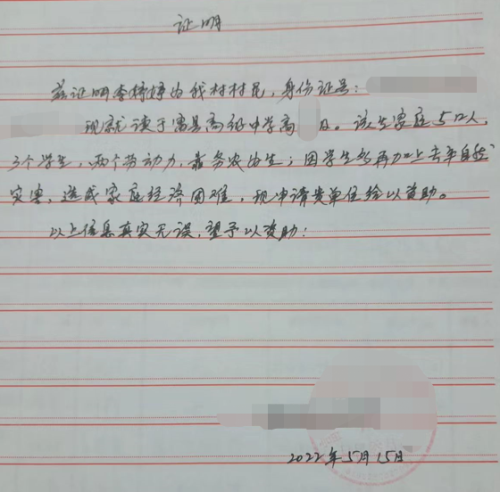 证明
兹证明李婷婷为我村村民，身份证号：
现就读于富县高级中学高
。该生家庭5口人，
3个学生，两个劳动力，靠务农为生；因学生多再加上去年自然
灾害，造成家庭经济困难，现申请贵单位给以资助。
以上信息真实无误，望予以资助！
2022年5月15日